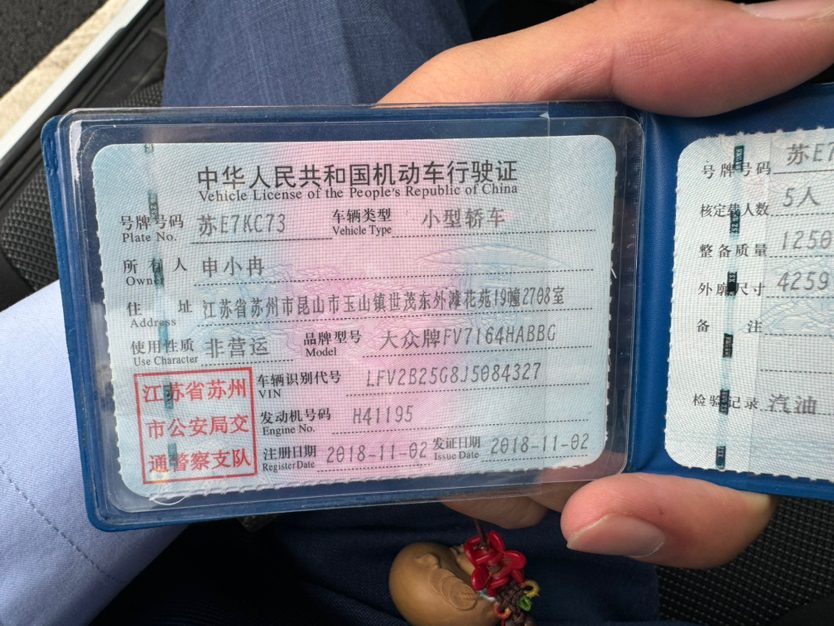 中华人民共和国机动车行驶证
Vehicle License of the People's Republic of China
号牌号码 苏E7KC73 车辆类型 小型轿车
Plate No. Vehicle Type
所有人 申小冉
Owner
住址 江苏省苏州市昆山市玉山镇世茂东外滩花苑19幢2708室
Address
使用性质 非营运 品牌型号 大众牌FV7164HABBG
Use Character Model
江苏省苏州
市公安局交
通警察支队
车辆识别代号 LFV2B25G8J5084327
VIN
发动机号码 H41195
Engine No.
注册日期 2018-11-02 发证日期 2018-11-02
Register Date Issue Date
号牌号码 苏E7
核定载人数 5人
整备质量 1250
外廓尺寸 4259
备注
检验记录 汽油